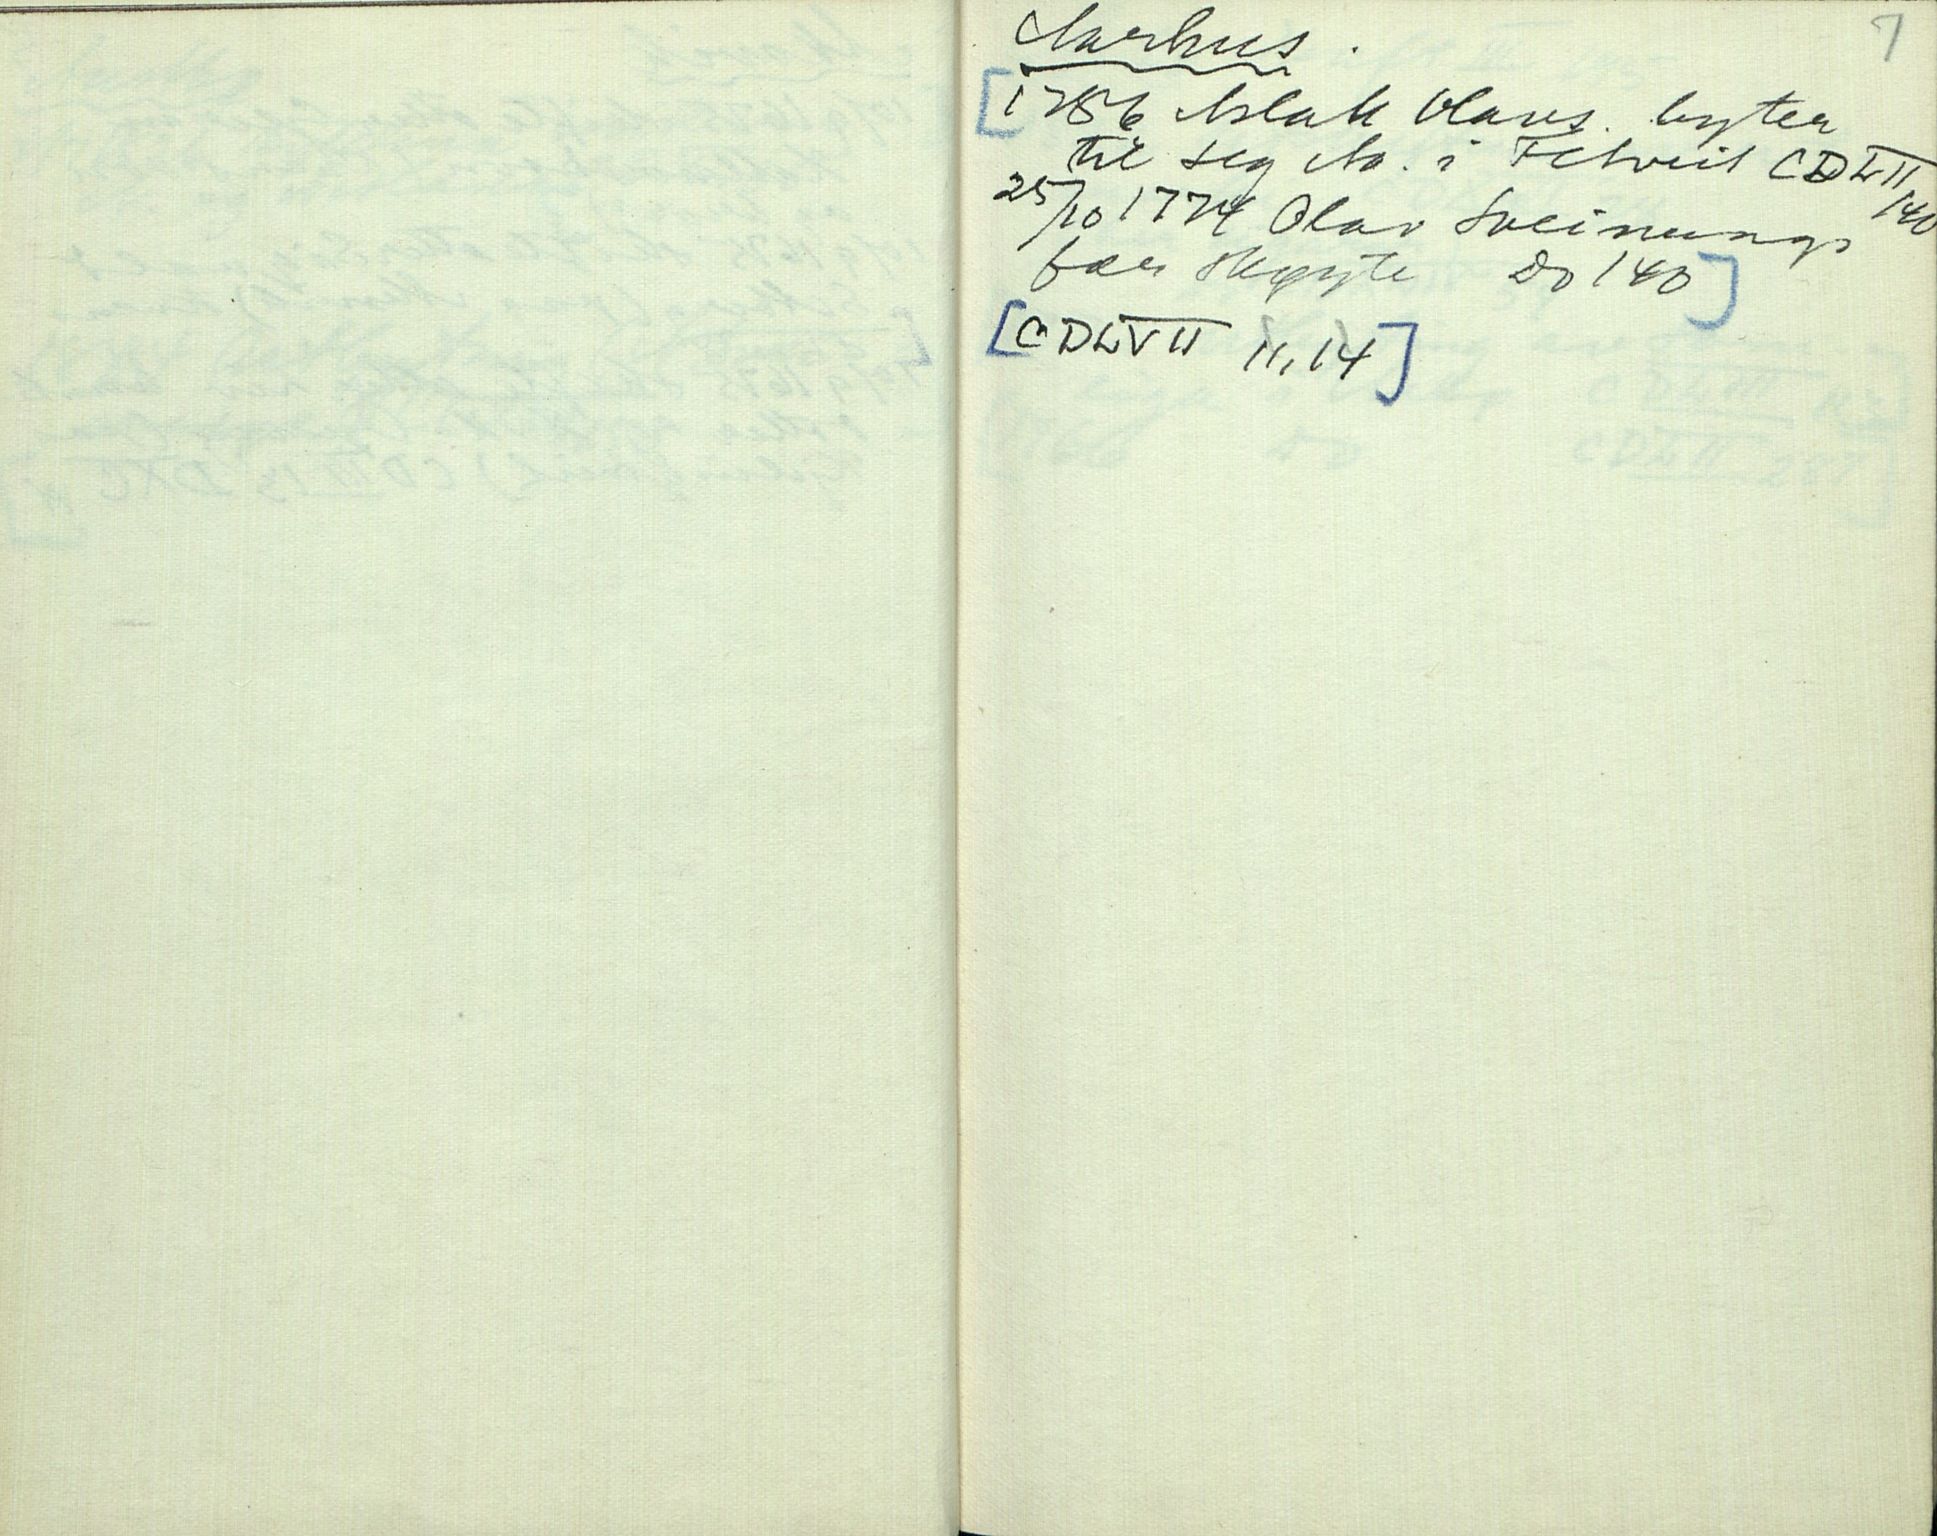 7
Aarhus.
[1756 Aslak Olavs. byter
til seg Aa. i Felveit CDLVII 140
25/10 1774 Olav Sveinungs
fær skøyte Do 140]
[CDLVII 11, 14]